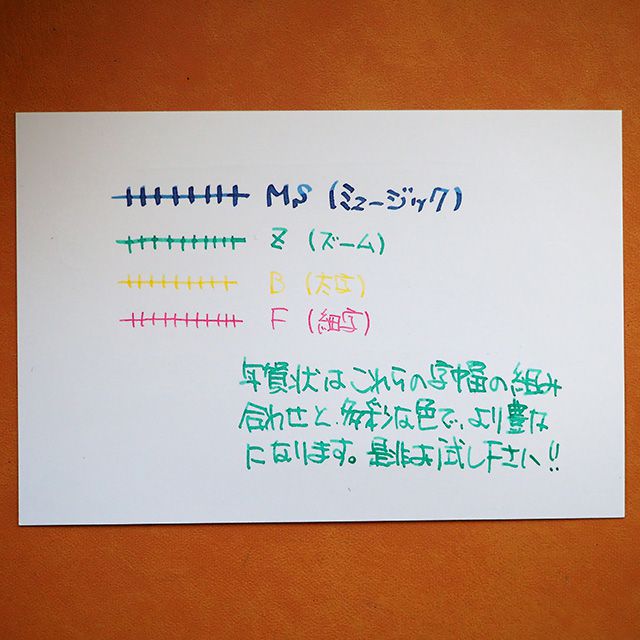 MS (ミュージック)
Z (ズーム)
B (太字)
F (細字)
年賀状はこれらの字幅の組み
合わせと、多彩な色で、より豊な
になります。是非お試し下さい!!